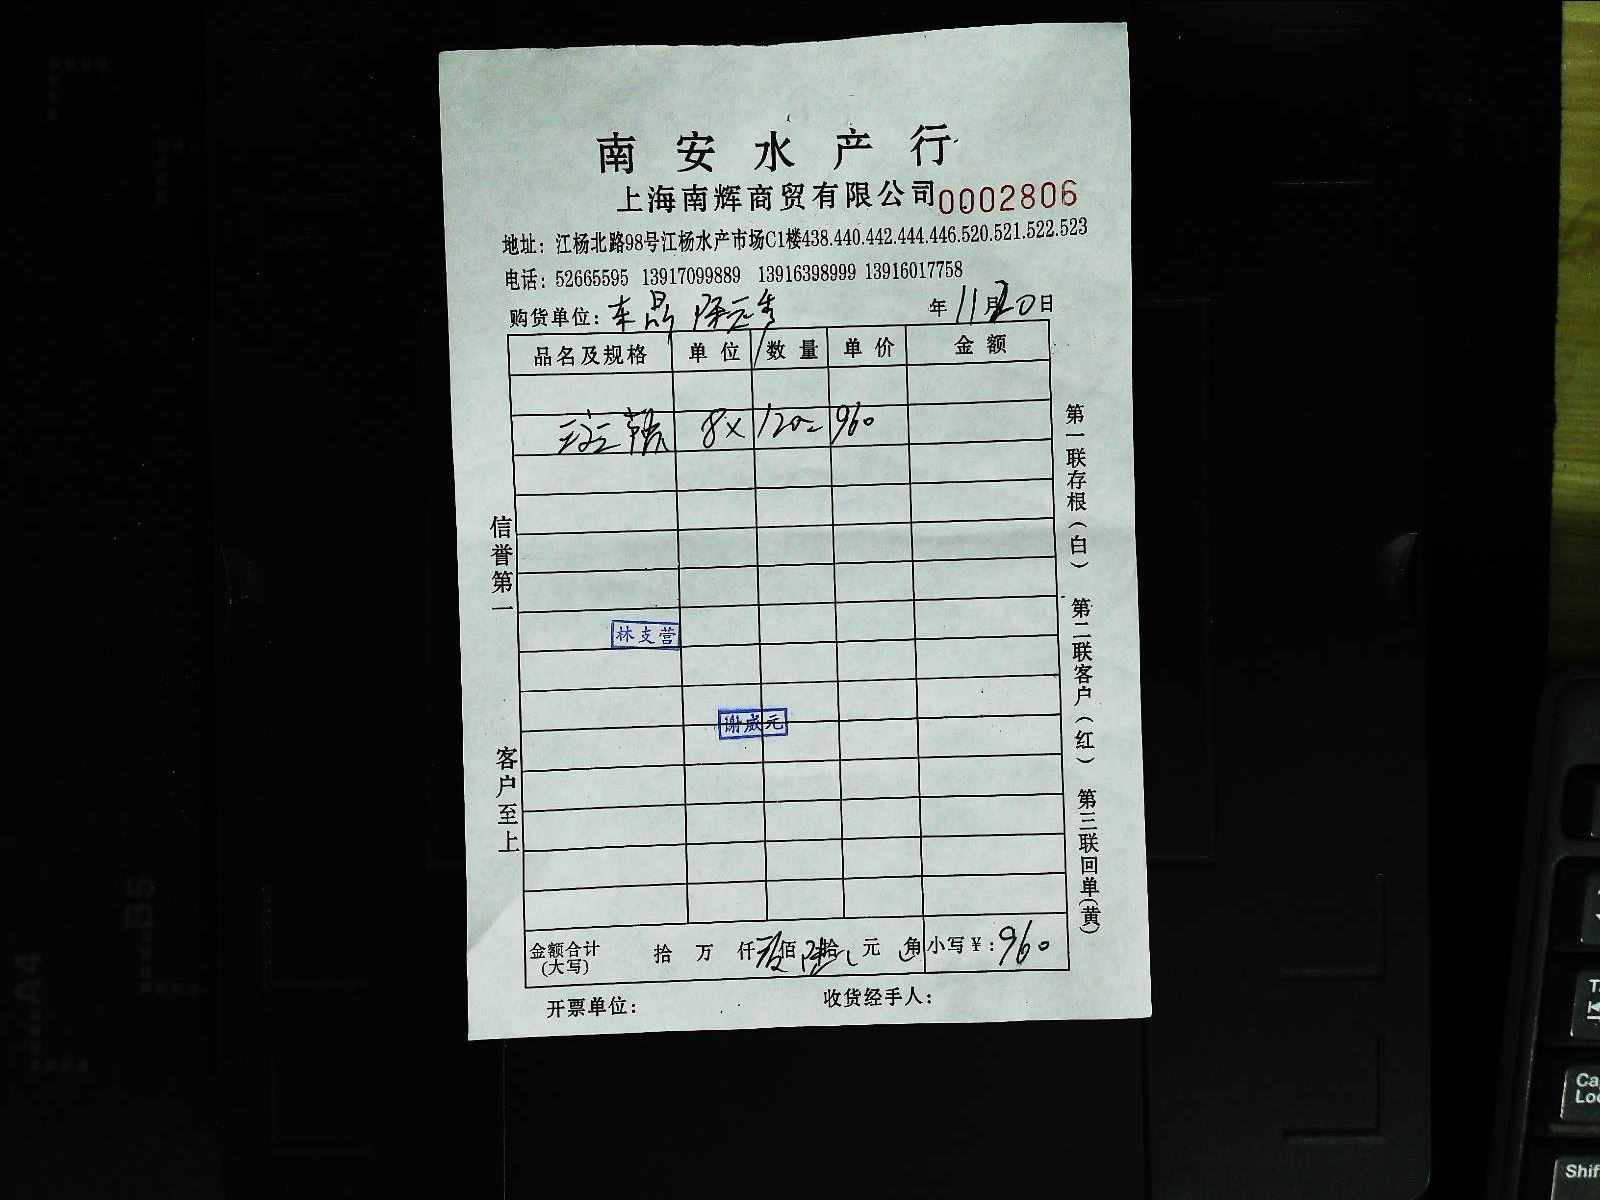 南安水产行
上海南辉商贸有限公司 0002806
地址：江杨北路98号江杨水产市场C1楼438.440.442.444.446.520.521.522.523
电话：52665595 13917099889 13916398999 13916017758
购货单位： 年11月20日
品名及规格 单位 数量 单价 金额
8× 120- 960
信誉第一
客户至上
林支营
谢威元
第一联存根（白）
第二联客户（红）
第三联回单(黄)
金额合计(大写) 拾 万 仟 佰 拾 元 角 小写￥：960
开票单位： 收货经手人：
A4
B5
Shif